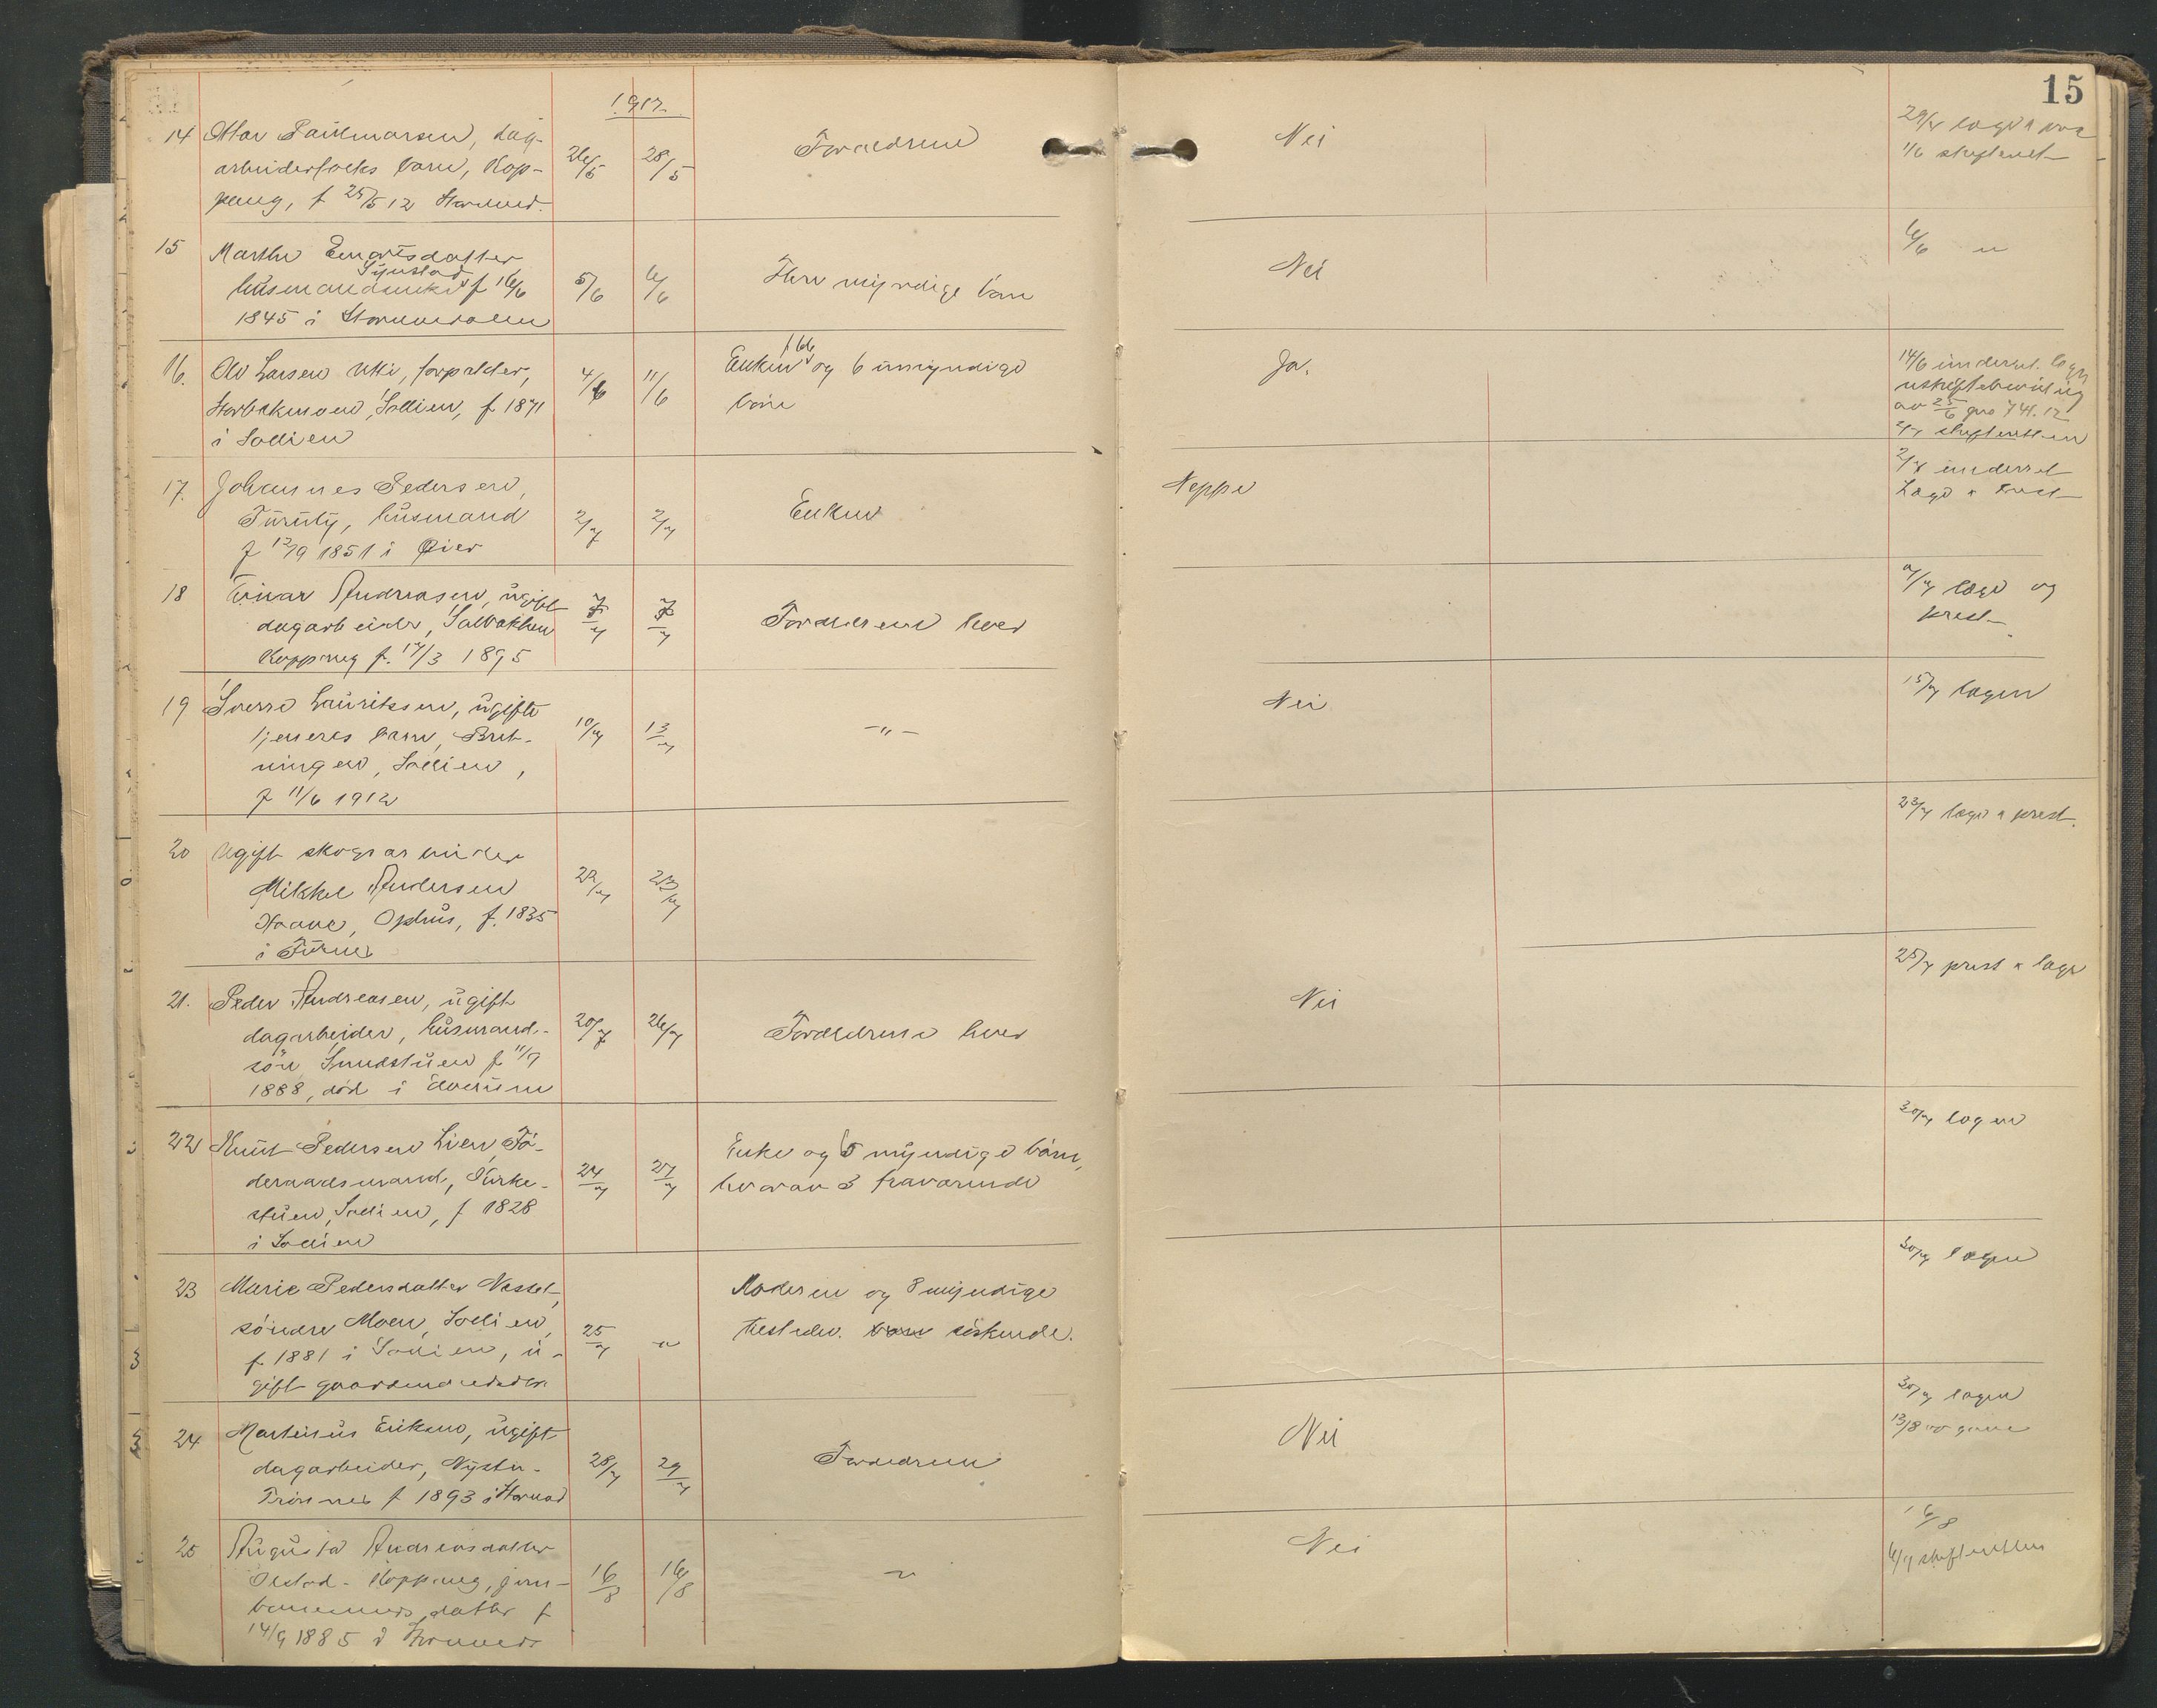 15
1912
14 Ottar Paulmarsen, dag-
arbeiderfolks barn, Kop-
pang, f 25/5 12 Storelved.
26/5 28/5
Forældrene
Nei
29/5 læge & prest
1/6 skifteret
15 Marthe Einarsdatter
husmandsenke f 16/6
1845 i Storelvedalen
5/6 6/6
Flere myndige barn
Nei
6/6 "
16. Ole Larsen Utti, forpakter,
Storbekmoen, Sollien, f 1871
i Sollien
4/6 11/6
Enken og 6 umyndige
barn
Ja.
14/6 underret. lægen
uskiftebevilling
av 25/6 jno 741.12
skifteretten
17. Johannes Pedersen,
husmand
f 12/9 1851 i Øier
2/7 2/7
Enken
Neppe
2/7 underret
Læge & Prest
18 Einar Andreasen, ugift
dagarbeider, Solbakken
Koppang f. 17/3 1895
7/7 7/7
Forældrene lever
9/7 læge og
prest
19 Sverre Lauritsen, ugifte
tjeneres barn, Bret-
ningen, Sollien,
f 11/6 1912
10/7 13/7
- " -
Nei
15/7 lægen
20 Ugift skogsarbeider
Mikkel Andersen
Haave, Ophus, f. 1835
i
22/7 23/7
23/7 læge & prest.
21. Peder Andreasen, ugift
dagarbeider, husmand-
søn, Sundstuen f 11/7
1888, død i
20/7 26/7
Forældrene lever
Nei
25/7 prest & læge
22 Knut Pedersen Lien, Fø-
deraadsmand, Kirke-
stuen, Sollien, f 1828
i Sollien
24/7 27/7
Enke og 5 myndige barn,
hvorav 3 fraværende
30/7 lægen
23 Marie Pedersdatter Nesset,
søndre Moen, Sollien,
f. 1881 i Sollien, u-
gift gaardmandsdatter
25/7 "
Moderen og 8 myndige
tilstedev. barn søskende.
30/7 lægen
24 Martinus Eriksen, ugift
dagarbeider, Nystu-
Trønnes f 1893 i Storelved
28/7 29/7
Forældrene
Nei
30/7 lægen
13/8
25 Augusta Andreasdatter
Koppang, jern-
banemands datter f
14/9 1885 i Storelved
16/8 16/8
"
Nei
16/8
6/9 skifteretten